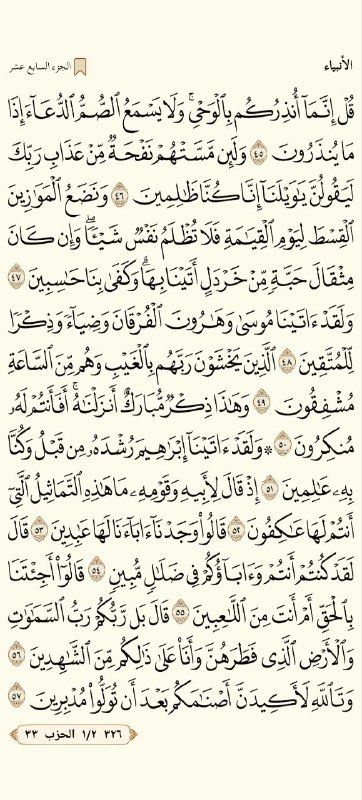 الأنبياء الجزء السابع عشر
قُلْ إِنَّمَآ أُنذِرُكُم بِٱلْوَحْىِ ۚ وَلَا يَسْمَعُ ٱلصُّمُّ ٱلدُّعَآءَ إِذَا
مَا يُنذَرُونَ ٤٥ وَلَئِن مَّسَّتْهُمْ نَفْحَةٌ مِّنْ عَذَابِ رَبِّكَ
لَيَقُولُنَّ يَـٰوَيْلَنَآ إِنَّا كُنَّا ظَـٰلِمِينَ ٤٦ وَنَضَعُ ٱلْمَوَٰزِينَ
ٱلْقِسْطَ لِيَوْمِ ٱلْقِيَـٰمَةِ فَلَا تُظْلَمُ نَفْسٌ شَيْـًٔا ۖ وَإِن كَانَ
مِثْقَالَ حَبَّةٍ مِّنْ خَرْدَلٍ أَتَيْنَا بِهَا ۗ وَكَفَىٰ بِنَا حَـٰسِبِينَ ٤٧
وَلَقَدْ ءَاتَيْنَا مُوسَىٰ وَهَـٰرُونَ ٱلْفُرْقَانَ وَضِيَآءً وَذِكْرًا
لِّلْمُتَّقِينَ ٤٨ ٱلَّذِينَ يَخْشَوْنَ رَبَّهُم بِٱلْغَيْبِ وَهُم مِّنَ ٱلسَّاعَةِ
مُشْفِقُونَ ٤٩ وَهَـٰذَا ذِكْرٌ مُّبَارَكٌ أَنزَلْنَـٰهُ ۚ أَفَأَنتُمْ لَهُۥ
مُنكِرُونَ ٥٠ ۞ وَلَقَدْ ءَاتَيْنَآ إِبْرَٰهِيمَ رُشْدَهُۥ مِن قَبْلُ وَكُنَّا
بِهِۦ عَـٰلِمِينَ ٥١ إِذْ قَالَ لِأَبِيهِ وَقَوْمِهِۦ مَا هَـٰذِهِ ٱلتَّمَاثِيلُ ٱلَّتِىٓ
أَنتُمْ لَهَا عَـٰكِفُونَ ٥٢ قَالُوا۟ وَجَدْنَآ ءَابَآءَنَا لَهَا عَـٰبِدِينَ ٥٣ قَالَ
لَقَدْ كُنتُمْ أَنتُمْ وَءَابَآؤُكُمْ فِى ضَلَـٰلٍ مُّبِينٍ ٥٤ قَالُوٓا۟ أَجِئْتَنَا
بِٱلْحَقِّ أَمْ أَنتَ مِنَ ٱللَّـٰعِبِينَ ٥٥ قَالَ بَل رَّبُّكُمْ رَبُّ ٱلسَّمَـٰوَٰتِ
وَٱلْأَرْضِ ٱلَّذِى فَطَرَهُنَّ وَأَنَا۠ عَلَىٰ ذَٰلِكُم مِّنَ ٱلشَّـٰهِدِينَ ٥٦
وَتَٱللَّهِ لَأَكِيدَنَّ أَصْنَـٰمَكُم بَعْدَ أَن تُوَلُّوا۟ مُدْبِرِينَ ٥٧
٣٢٦ ١/٢ الحزب ٣٣